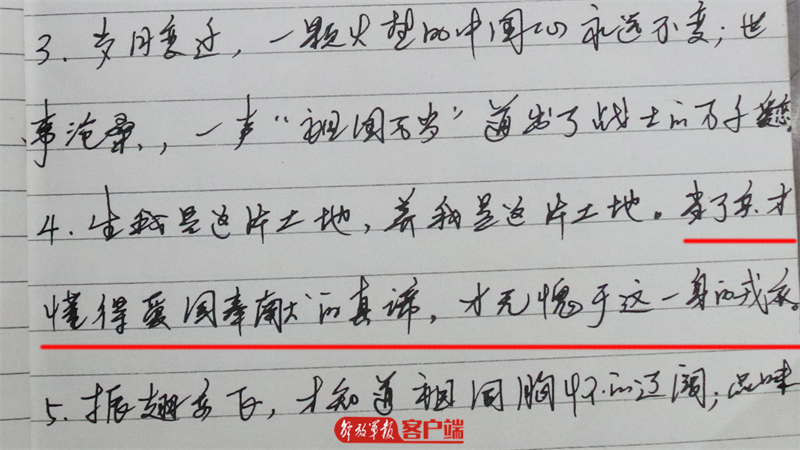 3. 岁月变迁，一颗火热的中国心永远不变；世
事沧桑，，一声“祖国万岁”道出了战士的万千
4. 生我是这片土地，养我是这片土地。当了兵，才
懂得爱国奉献的真谛，才无愧于这一身的戎衣。
5. 振翅高飞，才知道祖国胸怀的辽阔；品味
解放军报 客户端